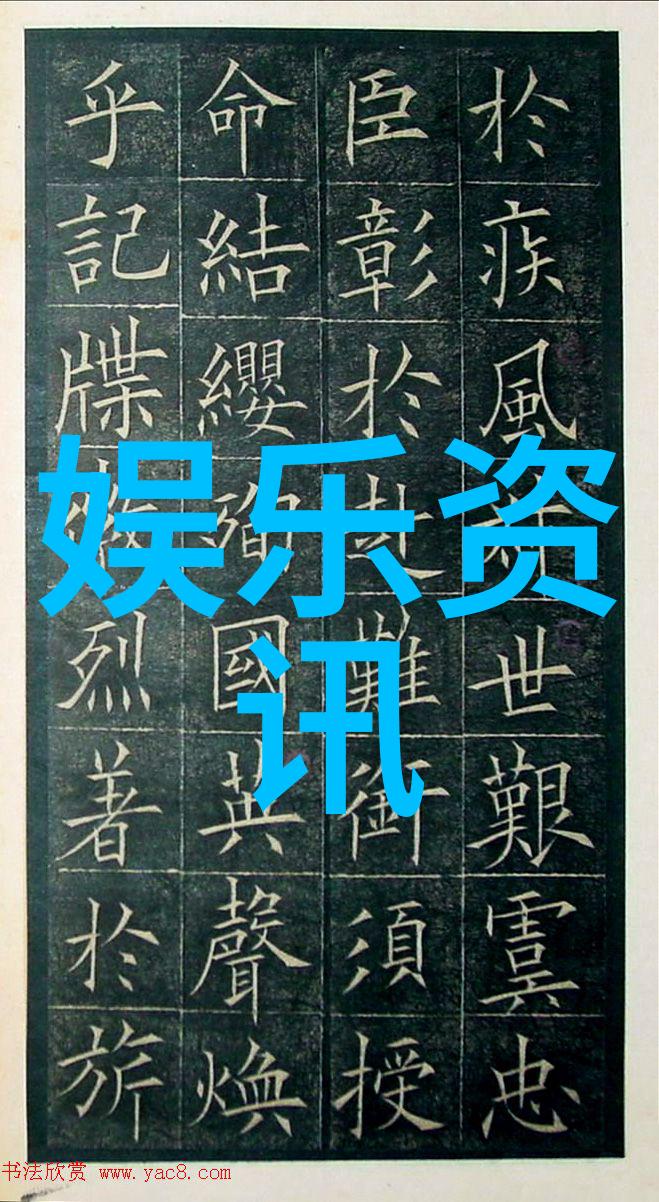 於疾風世艱虞忠
臣彰於赴難銜須授
命結纓殉國英聲煥
乎記牒烈著於旂
娱乐资
讯
书法欣赏 www.yac8.com